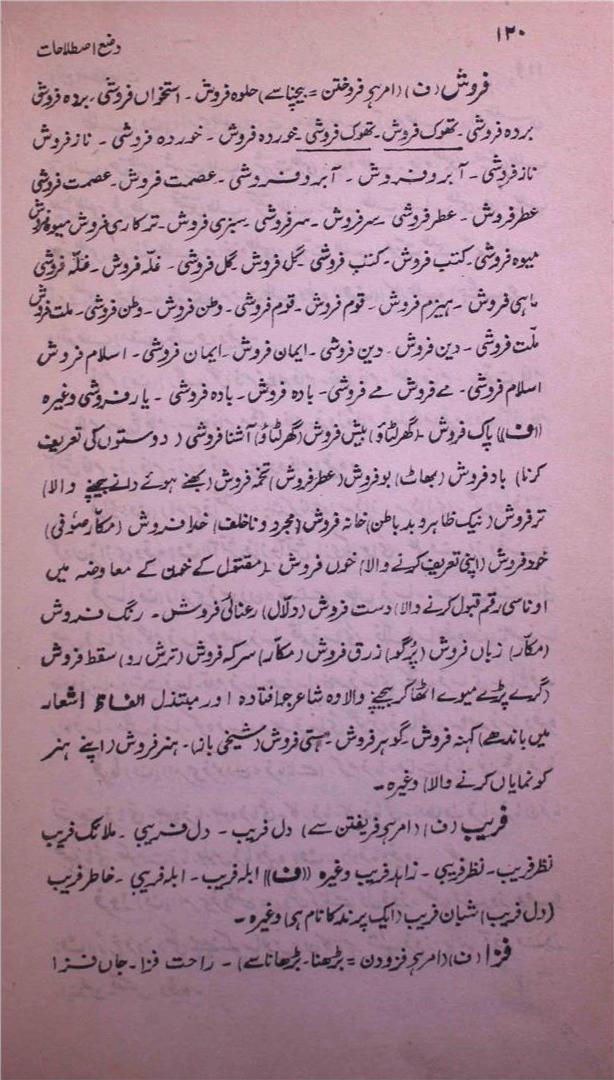 ۱۲۰
وضع اصطلاحات
فروش (ف) (امر ہے فروختن = بیچنا سے) حلوہ فروش - استخواں فروشی - بردہ فروش
بردہ فروشی - تھوک فروش - تھوک فروشی - خوردہ فروش - خوردہ فروشی - ناز فروش
ناز فروشی - آبرو فروش - آبرو فروشی - عصمت فروش - عصمت فروشی
عطر فروش - عطر فروشی - سر فروش - سر فروشی - سبزی فروش - ترکاری فروش - میوہ فروش
میوہ فروشی - کتب فروش - کتب فروشی - گل فروش - گل فروشی - غلّہ فروش - غلّہ فروشی
ماہی فروش - ہیزم فروش - قوم فروش - قوم فروشی - وطن فروش - وطن فروشی - ملت فروش
ملّت فروشی - دین فروش - دین فروشی - ایمان فروش - ایمان فروشی - اسلام فروش
اسلام فروشی - مے فروش - مے فروشی - بادہ فروش - بادہ فروشی - یار فروشی وغیرہ
((ف)) پاک فروش - (گھر لٹاؤ) بیش فروش (گھر لٹاؤ) آشنا فروشی (دوستوں کی تعریف
کرنا) باد فروش (بھاٹ) بو فروش (عطر فروش) تخمہ فروش (بھنے ہوئے دانے بیچنے والا)
تر فروش (نیک ظاہر و بد باطن) خانہ فروش (مجرد و ناخلف) خلا فروش (مکّار صوفی)
خود فروش (اپنی تعریف کرنے والا) خوں فروش (مقتول کے خون کے معاوضہ میں
اوناسی رقم قبول کرنے والا) دست فروش (دلّال) رعنائی فروش - رنگ فروش
(مکّار) زباں فروش (پُرگو) زرق فروش (مکّار) سرکہ فروش (ترش رو) سقط فروش
(گرے پڑے میوے اٹھا کر بیچنے والا وہ شاعر جو افتادہ اور مبتذل الفاظ اشعار
میں باندھے) کہنہ فروش - گوہر فروش - ہستی فروش (شیخی باز) - ہنر فروش (اپنے ہنر
کو نمایاں کرنے والا) وغیرہ -
فریب (ف) (امر ہے فریفتن سے) دل فریب - دل فریبی - ملائک فریب
نظر فریب - نظر فریبی - زاہد فریب وغیرہ ((ف)) ابلہ فریب - ابلہ فریبی - خاطر فریب
(دل فریب) شبان فریب (ایک پرند کا نام ہے) وغیرہ -
فزا (ف) (امر ہے فزودن = بڑھنا - بڑھانا سے) - راحت فزا - جاں فزا